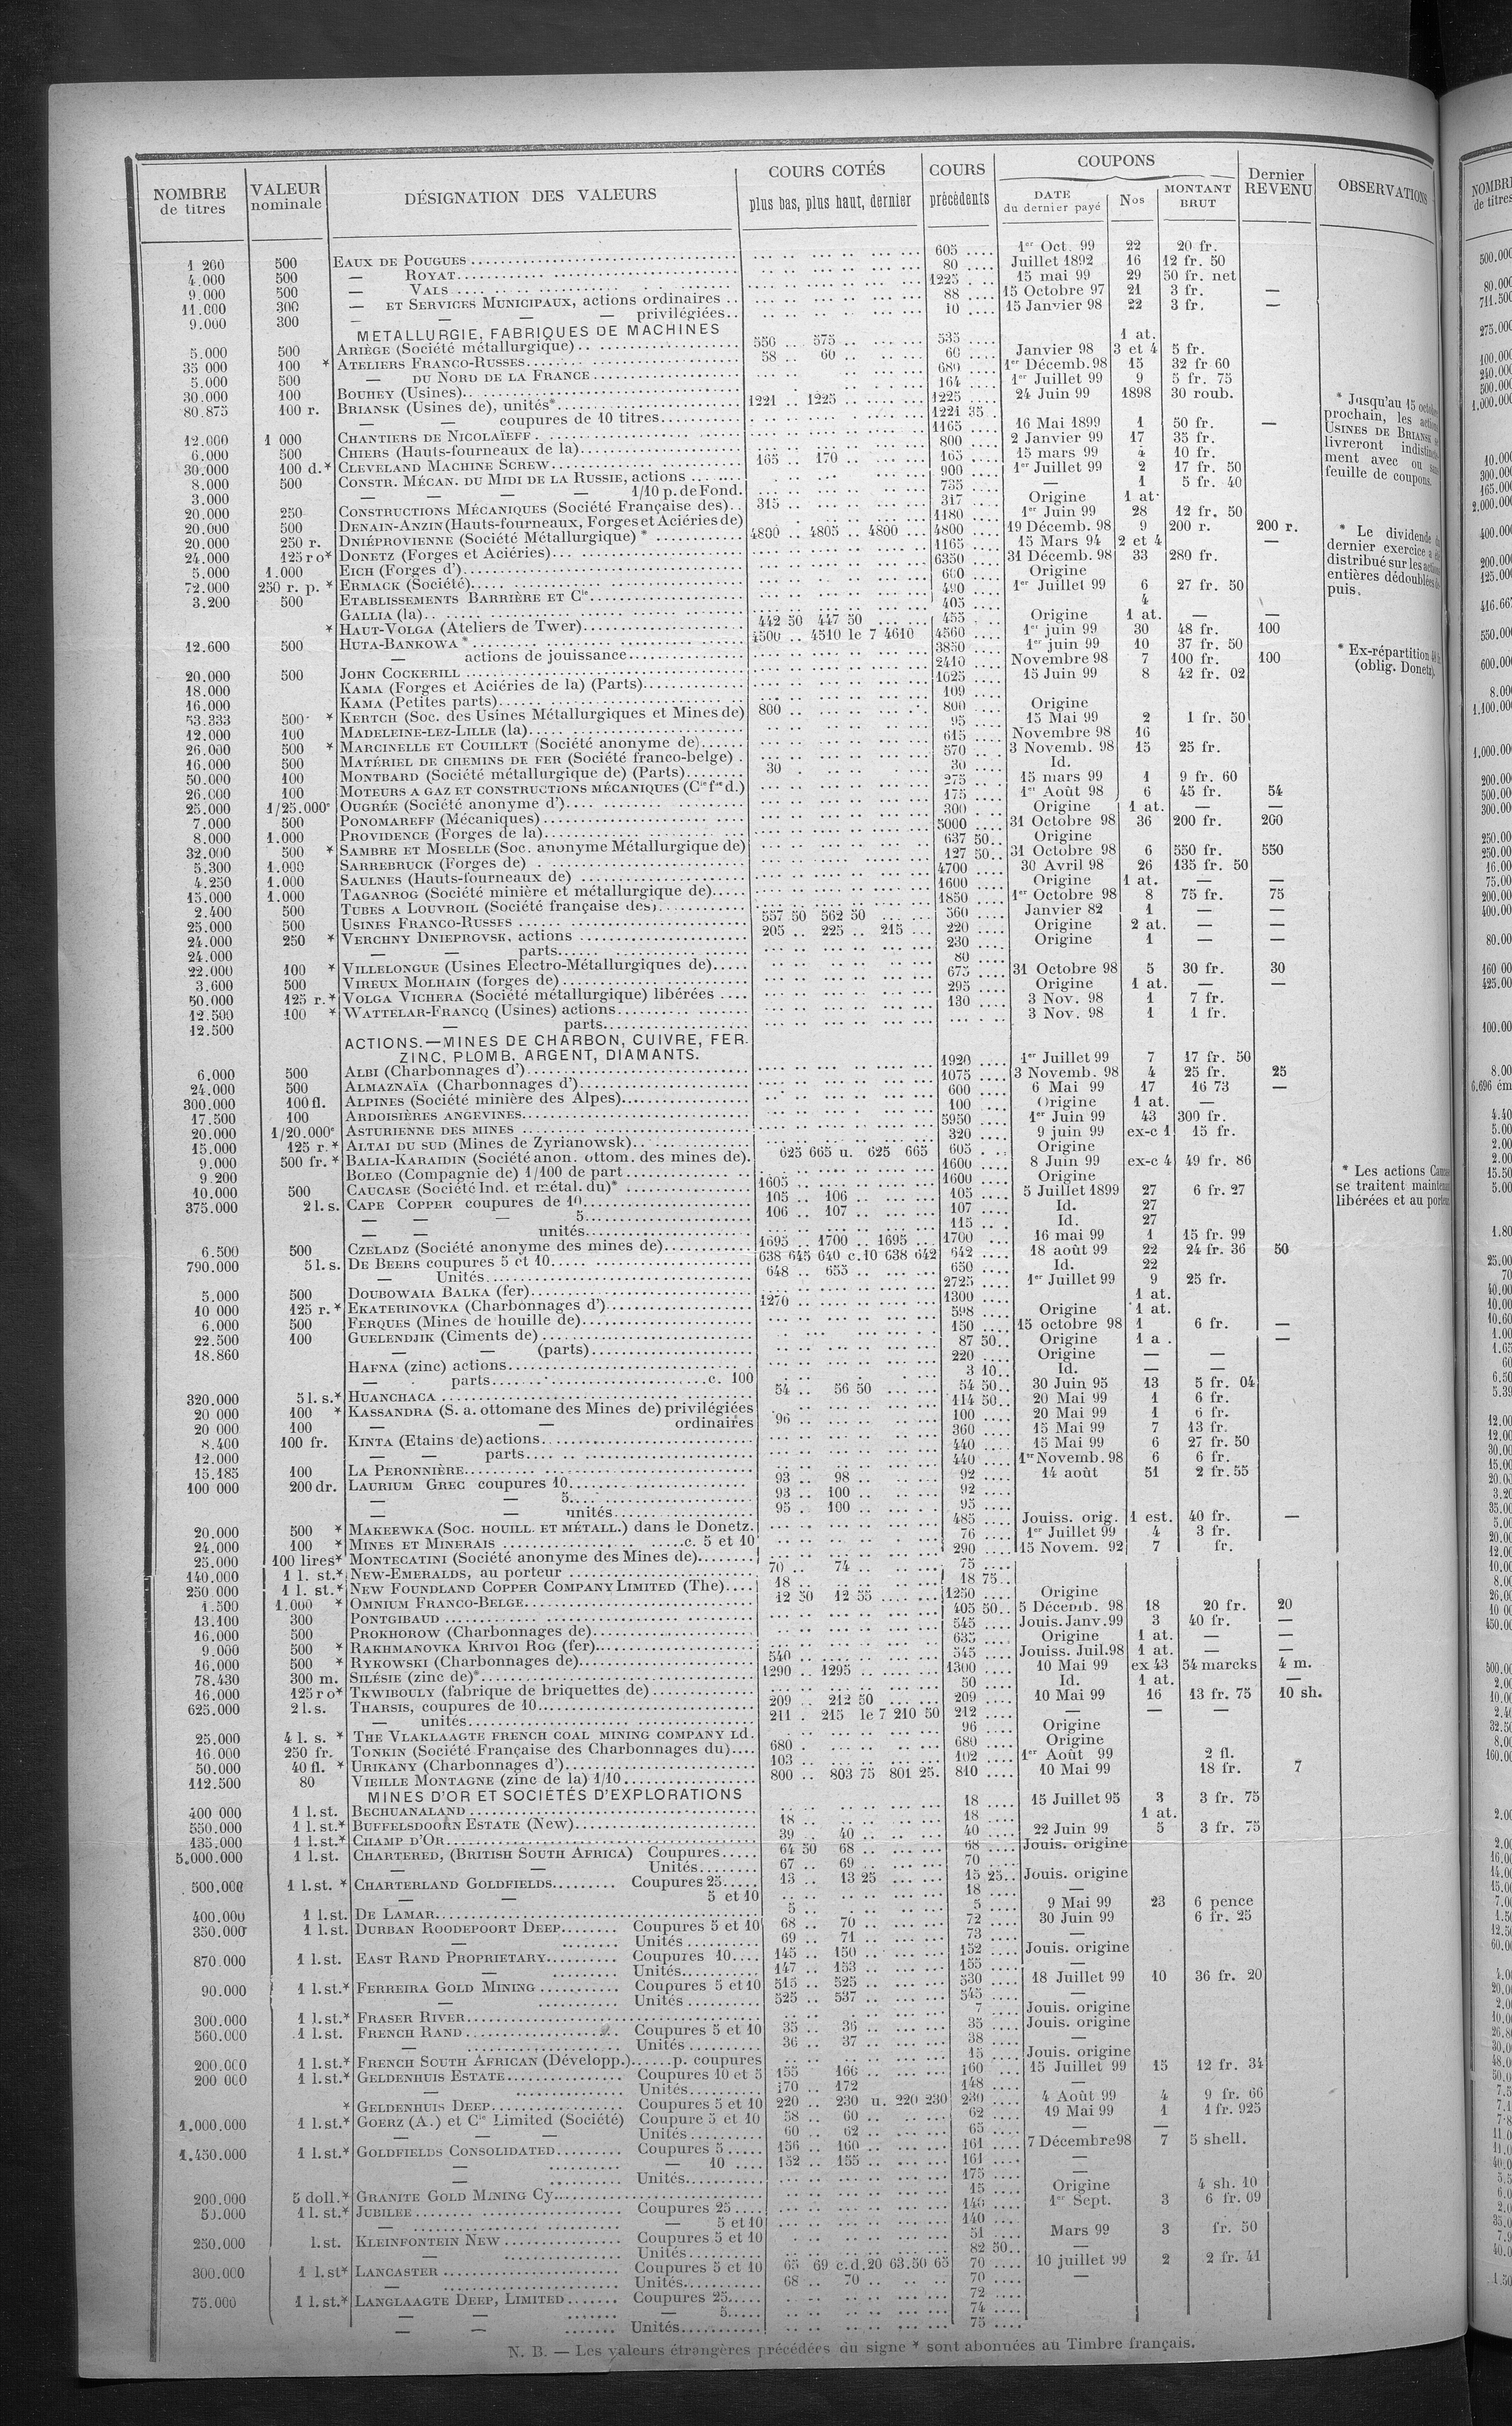 NOMBRE de titres | VALEUR nominale | DÉSIGNATION DES VALEURS | COURS COTÉS plus bas, plus haut, dernier | COURS précédents | COUPONS DATE du dernier payé | Nos | MONTANT BRUT | Dernier REVENU | OBSERVATIONS
1 260 500 EAUX DE POUGUES 605 1er Oct. 99 22 20 fr.
4.000 500 — ROYAT 80 Juillet 1892 16 12 fr. 50
9.000 500 — VALS 1225 15 mai 99 29 50 fr. net
11.000 300 — ET SERVICES MUNICIPAUX, actions ordinaires 88 15 Octobre 97 21 3 fr. —
9.000 300 — — — privilégiées 10 15 Janvier 98 22 3 fr. —
METALLURGIE, FABRIQUES DE MACHINES
5.000 500 ARIÈGE (Société métallurgique) 550 575 535 1 at.
35 000 100 * ATELIERS FRANCO-RUSSES 58 60 60 Janvier 98 3 et 4 5 fr.
5.000 500 — DU NORD DE LA FRANCE 680 1er Décemb. 98 15 32 fr 60
30.000 100 BOUHEY (Usines) 164 1er Juillet 99 9 5 fr. 75
80.875 100 r. BRIANSK (Usines de), unités* 1221 1225 1225 24 Juin 99 1898 30 roub.
— — coupures de 10 titres 1221 35
12.000 1 000 CHANTIERS DE NICOLAÏEFF 1165 16 Mai 1899 1 50 fr. —
6.000 500 CHIERS (Hauts-fourneaux de la) 800 2 Janvier 99 17 35 fr.
30.000 100 d.* CLEVELAND MACHINE SCREW 165 170 165 15 mars 99 4 10 fr.
8.000 500 CONSTR. MÉCAN. DU MIDI DE LA RUSSIE, actions 900 1er Juillet 99 2 17 fr. 50
3.000 — — — — 1/10 p. de Fond. 735 — 1 5 fr. 40
20.000 250 CONSTRUCTIONS MÉCANIQUES (Société Française des) 315 317 Origine 1 at.
20.000 500 DENAIN-ANZIN (Hauts-fourneaux, Forges et Aciéries de) 1180 1er Juin 99 28 12 fr. 50
20.000 250 r. DNIÉPROVIENNE (Société Métallurgique) * 4800 4805 4800 4800 19 Décemb. 98 9 200 r. 200 r.
24.000 125 ro* DONETZ (Forges et Aciéries) 1165 15 Mars 94 2 et 4 —
5.000 1.000 EICH (Forges d') 6350 31 Décemb. 98 33 280 fr.
72.000 250 r. p. * ERMACK (Société) 600 Origine
3.200 500 ETABLISSEMENTS BARRIÈRE ET Cie 490 1er Juillet 99 6 27 fr. 50
GALLIA (la) 405 4
* HAUT-VOLGA (Ateliers de Twer) 442 50 447 50 455 Origine 1 at. — —
12.600 500 HUTA-BANKOWA * 4500 4510 le 7 4610 4560 1er juin 99 30 48 fr. 100
— actions de jouissance 3850 1er juin 99 10 37 fr. 50
20.000 500 JOHN COCKERILL 2410 Novembre 98 7 100 fr. 100
18.000 KAMA (Forges et Aciéries de la) (Parts) 1625 15 Juin 99 8 42 fr. 02
16.000 KAMA (Petites parts) 109
53.333 500 * KERTCH (Soc. des Usines Métallurgiques et Mines de) 800 800 Origine
12.000 100 MADELEINE-LEZ-LILLE (la) 95 15 Mai 99 2 1 fr. 50
26.000 500 * MARCINELLE ET COUILLET (Société anonyme de) 615 Novembre 98 16
16.000 500 MATÉRIEL DE CHEMINS DE FER (Société franco-belge) 570 3 Novemb. 98 15 25 fr.
50.000 100 MONTBARD (Société métallurgique de) (Parts) 30 30 Id.
26.000 100 MOTEURS A GAZ ET CONSTRUCTIONS MÉCANIQUES (Cie fse d.) 275 15 mars 99 1 9 fr. 60
25.000 1/25.000e OUGRÉE (Société anonyme d') 175 1er Août 98 6 45 fr. 54
7.000 500 PONOMAREFF (Mécaniques) 300 Origine 1 at. — —
8.000 1.000 PROVIDENCE (Forges de la) 5000 31 Octobre 98 36 200 fr. 200
32.000 500 * SAMBRE ET MOSELLE (Soc. anonyme Métallurgique de) 637 50 Origine
5.300 1.000 SARREBRUCK (Forges de) 127 50 31 Octobre 98 6 550 fr. 550
4.250 1.000 SAULNES (Hauts-fourneaux de) 4700 30 Avril 98 26 135 fr. 50
15.000 1.000 TAGANROG (Société minière et métallurgique de) 1600 Origine 1 at. — —
2.400 500 TUBES A LOUVROIL (Société française des) 1850 1er Octobre 98 8 75 fr. 75
25.000 500 USINES FRANCO-RUSSES 557 50 562 50 560 Janvier 82 1 — —
24.000 250 * VERCHNY DNIEPROVSK, actions 205 225 215 220 Origine 2 at. — —
24.000 — — parts 230 Origine 1 — —
22.000 100 * VILLELONGUE (Usines Electro-Métallurgiques de) 80
3.600 500 VIREUX MOLHAIN (forges de) 675 31 Octobre 98 5 30 fr. 30
50.000 125 r.* VOLGA VICHERA (Société métallurgique) libérées 295 Origine 1 at. — —
12.500 100 * WATTELAR-FRANCQ (Usines) actions 130 3 Nov. 98 1 7 fr.
12.500 — parts 3 Nov. 98 1 1 fr.
ACTIONS.—MINES DE CHARBON, CUIVRE, FER.
ZINC, PLOMB, ARGENT, DIAMANTS.
6.000 500 ALBI (Charbonnages d') 1920 1er Juillet 99 7 17 fr. 50
24.000 500 ALMAZNAÏA (Charbonnages d') 1075 3 Novemb. 98 4 25 fr. 25
300.000 100 fl. ALPINES (Société minière des Alpes) 600 6 Mai 99 17 16 73 —
17.500 100 ARDOISIÈRES ANGEVINES 100 Origine 1 at. —
20.000 1/20.000e ASTURIENNE DES MINES 5950 1er Juin 99 43 300 fr.
15.000 125 r.* ALTAI DU SUD (Mines de Zyrianowsk) 320 9 juin 99 ex-c 1 15 fr.
9.000 500 fr.* BALIA-KARAIDIN (Société anon. ottom. des mines de) 625 665 u. 625 665 605 Origine
9.200 BOLEO (Compagnie de) 1/100 de part 1600 8 Juin 99 ex-c 4 49 fr. 86
10.000 500 CAUCASE (Société Ind. et métal. du)* 1605 1600 Origine
375.000 2 l. s. CAPE COPPER coupures de 10 105 106 105 5 Juillet 1899 27 6 fr. 27
— — — 5 106 107 107 Id. 27
— — unités 115 Id. 27
6.500 500 CZELADZ (Société anonyme des mines de) 1695 1700 1695 1700 16 mai 99 1 15 fr. 99
790.000 5 l. s. DE BEERS coupures 5 et 10 638 645 640 c.10 638 642 642 18 août 99 22 24 fr. 36 50
— Unités 648 655 650 Id. 22
5.000 500 DOUBOWAIA BALKA (fer) 2725 1er Juillet 99 9 25 fr.
10 000 125 r.* EKATERINOVKA (Charbonnages d') 1270 1300 1 at.
6.000 500 FERQUES (Mines de houille de) 598 Origine 1 at.
22.500 100 GUELENDJIK (Ciments de) 150 15 octobre 98 1 6 fr. —
18.860 — — (parts) 87 50 Origine 1 a . —
HAFNA (zinc) actions 220 Origine — —
— parts c. 100 3 10 Id. — —
320.000 5 l. s.* HUANCHACA 54 56 50 54 50 30 Juin 95 13 5 fr. 04
20 000 100 * KASSANDRA (S. a. ottomane des Mines de) privilégiées 114 50 20 Mai 99 1 6 fr.
20 000 100 — — ordinaires 96 100 20 Mai 99 1 6 fr.
8.400 100 fr. KINTA (Etains de) actions 360 15 Mai 99 7 13 fr.
12.000 — — parts 440 15 Mai 99 6 27 fr. 50
15.185 100 LA PERONNIÈRE 440 1er Novemb. 98 6 6 fr.
100 000 200 dr. LAURIUM GREC coupures 10 93 98 92 14 août 51 2 fr. 55
— — 5 93 100 92
— — unités 95 100 95
20.000 500 * MAKEEWKA (SOC. HOUILL. ET MÉTALL.) dans le Donetz. 485 Jouiss. orig. 1 est. 40 fr. —
24.000 100 * MINES ET MINERAIS c. 5 et 10 76 1er Juillet 99 4 3 fr.
25.000 100 lires* MONTECATINI (Société anonyme des Mines de) 290 15 Novem. 92 7 fr.
140.000 1 l. st.* NEW-EMERALDS, au porteur 70 74 75
250 000 1 l. st.* NEW FOUNDLAND COPPER COMPANY LIMITED (The) 18 18 75
1.500 1.000 * OMNIUM FRANCO-BELGE 12 50 12 55 1250 Origine
13.100 300 PONTGIBAUD 405 50 5 Décemb. 98 18 20 fr. 20
16.000 500 PROKHOROW (Charbonnages de) 545 Jouis. Janv. 99 3 40 fr. —
9.000 500 * RAKHMANOVKA KRIVOI ROG (fer) 635 Origine 1 at. — —
16.000 500 * RYKOWSKI (Charbonnages de) 540 545 Jouiss. Juil. 98 1 at. — —
78.430 300 m. SILÉSIE (zinc de)* 1290 1295 1300 10 Mai 99 ex 43 54 marcks 4 m.
16.000 125 ro* TKWIBOULY (fabrique de briquettes de) 50 Id. 1 at. —
625.000 2 l. s. THARSIS, coupures de 10 209 212 50 209 10 Mai 99 16 13 fr. 75 10 sh.
— unités 211 215 le 7 210 50 212 — — —
25.000 4 l. s. * THE VLAKLAAGTE FRENCH COAL MINING COMPANY Ld. 96 Origine
16.000 250 fr. TONKIN (Société Française des Charbonnages du) 680 680 Origine
50.000 40 fl. * URIKANY (Charbonnages d') 103 102 1er Août 99 2 fl.
112.500 80 VIEILLE MONTAGNE (zinc de la) 1/10 800 803 75 801 25 810 10 Mai 99 18 fr. 7
MINES D'OR ET SOCIÉTÉS D'EXPLORATIONS
400 000 1 l. st. BECHUANALAND 18 15 Juillet 95 3 3 fr. 75
550.000 1 l. st.* BUFFELSDOORN ESTATE (New) 18 18 1 at.
135.000 1 l. st.* CHAMP D'OR 39 40 40 22 Juin 99 5 3 fr. 75
5.000.000 1 l. st. CHARTERED, (BRITISH SOUTH AFRICA) Coupures 64 50 68 68 Jouis. origine
— — Unités 67 69 70
500.000 1 l. st. * CHARTERLAND GOLDFIELDS Coupures 25 13 13 25 15 25 Jouis. origine
— — 5 et 10 18 —
400.000 1 l. st. DE LAMAR 5 5 9 Mai 99 23 6 pence
350.000 1 l. st. DURBAN ROODEPOORT DEEP Coupures 5 et 10 68 70 72 30 Juin 99 6 fr. 25
— Unités 69 71 73 —
870.000 1 l. st. EAST RAND PROPRIETARY Coupures 10 145 150 152 Jouis. origine
— Unités 147 153 155 —
90.000 1 l. st.* FERREIRA GOLD MINING Coupures 5 et 10 515 525 530 18 Juillet 99 10 36 fr. 20
— Unités 525 537 545 —
300.000 1 l. st.* FRASER RIVER 7 Jouis. origine
560.000 1 l. st. FRENCH RAND Coupures 5 et 10 35 36 35 Jouis. origine
— Unités 36 37 38 —
200.000 1 l. st.* FRENCH SOUTH AFRICAN (Développ.) p. coupures 15 Jouis. origine
200 000 1 l. st.* GELDENHUIS ESTATE Coupures 10 et 5 155 166 160 15 Juillet 99 15 12 fr. 34
— Unités 170 172 148 —
* GELDENHUIS DEEP Coupures 5 et 10 220 230 u. 220 230 230 4 Août 99 4 9 fr. 66
1.000.000 1 l. st.* GOERZ (A.) et Cie Limited (Société) Coupure 5 et 10 58 60 62 19 Mai 99 1 1 fr. 925
— — — Unités 60 62 65 —
1.450.000 1 l. st.* GOLDFIELDS CONSOLIDATED Coupures 5 156 160 161 7 Décembre 98 7 5 shell.
— — 10 152 155 161 —
— Unités 175 —
200.000 5 doll.* GRANITE GOLD MINING Cy 15 Origine 4 sh. 10
50.000 1 l. st.* JUBILEE Coupures 25 140 1er Sept. 3 6 fr. 09
— — 5 et 10 140
250.000 1.st. KLEINFONTEIN NEW Coupures 5 et 10 51 Mars 99 3 fr. 50
— Unités 82 50 —
300.000 1 l. st* LANCASTER Coupures 5 et 10 65 69 c.d.20 63.50 65 70 10 juillet 99 2 2 fr. 41
— Unités 68 70 70 —
75.000 1 l. st.* LANGLAAGTE DEEP, LIMITED Coupures 25 72
— — — 5 74
— — Unités 75
* Jusqu'au 15
prochain, les
USINES DE BRIANSK
livreront
ment avec ou
feuille de coupons.
* Le dividende
dernier exercice a
distribué sur les
entières dédoublées
puis.
* Ex-répartition
(oblig. Donetz).
* Les actions
se traitent
libérées et au
N. B. — Les valeurs étrangères précédées du signe * sont abonnées au Timbre français.